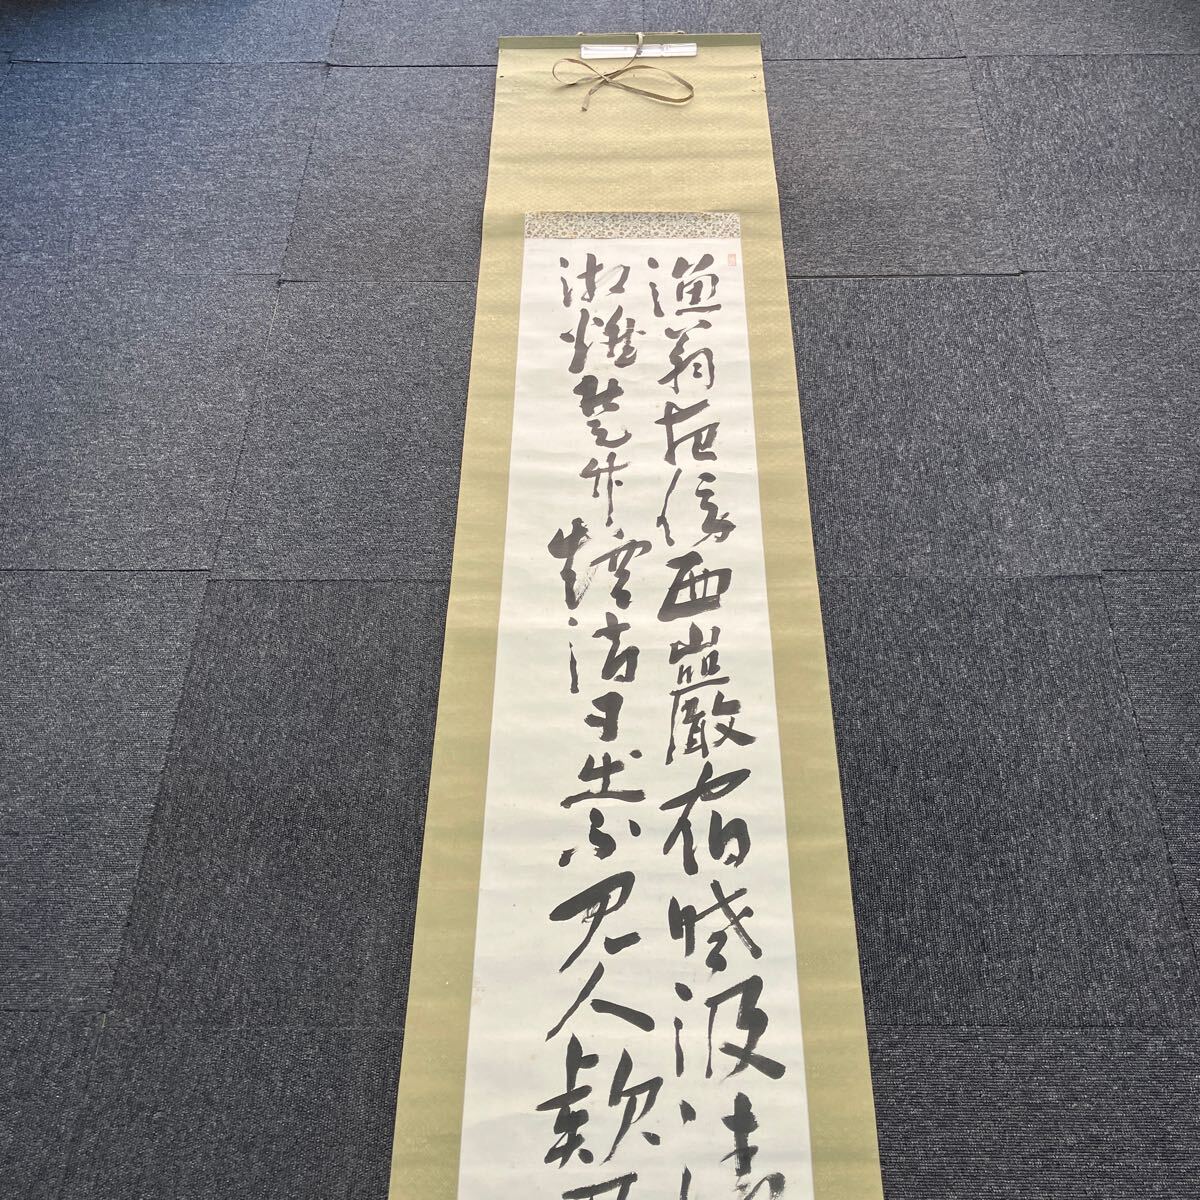 漁翁夜傍西巖宿曉汲清
湘燃楚竹煙消日出不見人欸